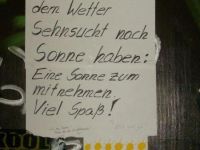 dem Wetter
Sehnsucht nach
Sonne haben:
Eine Sonne zum
mitnehmen.
Viel Spaß!